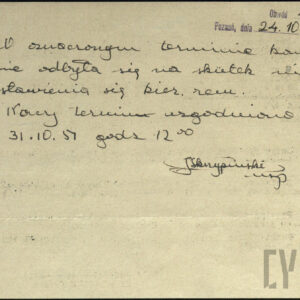 Obwód
Poznań, dnia 24. 10
W oznaczonym terminie kon
nie odbyła się na skutek nie
stawienia się kier. rem.
Nowy termin uzgodniono
31.10.51 godz 12 00
Skrypiński
CY